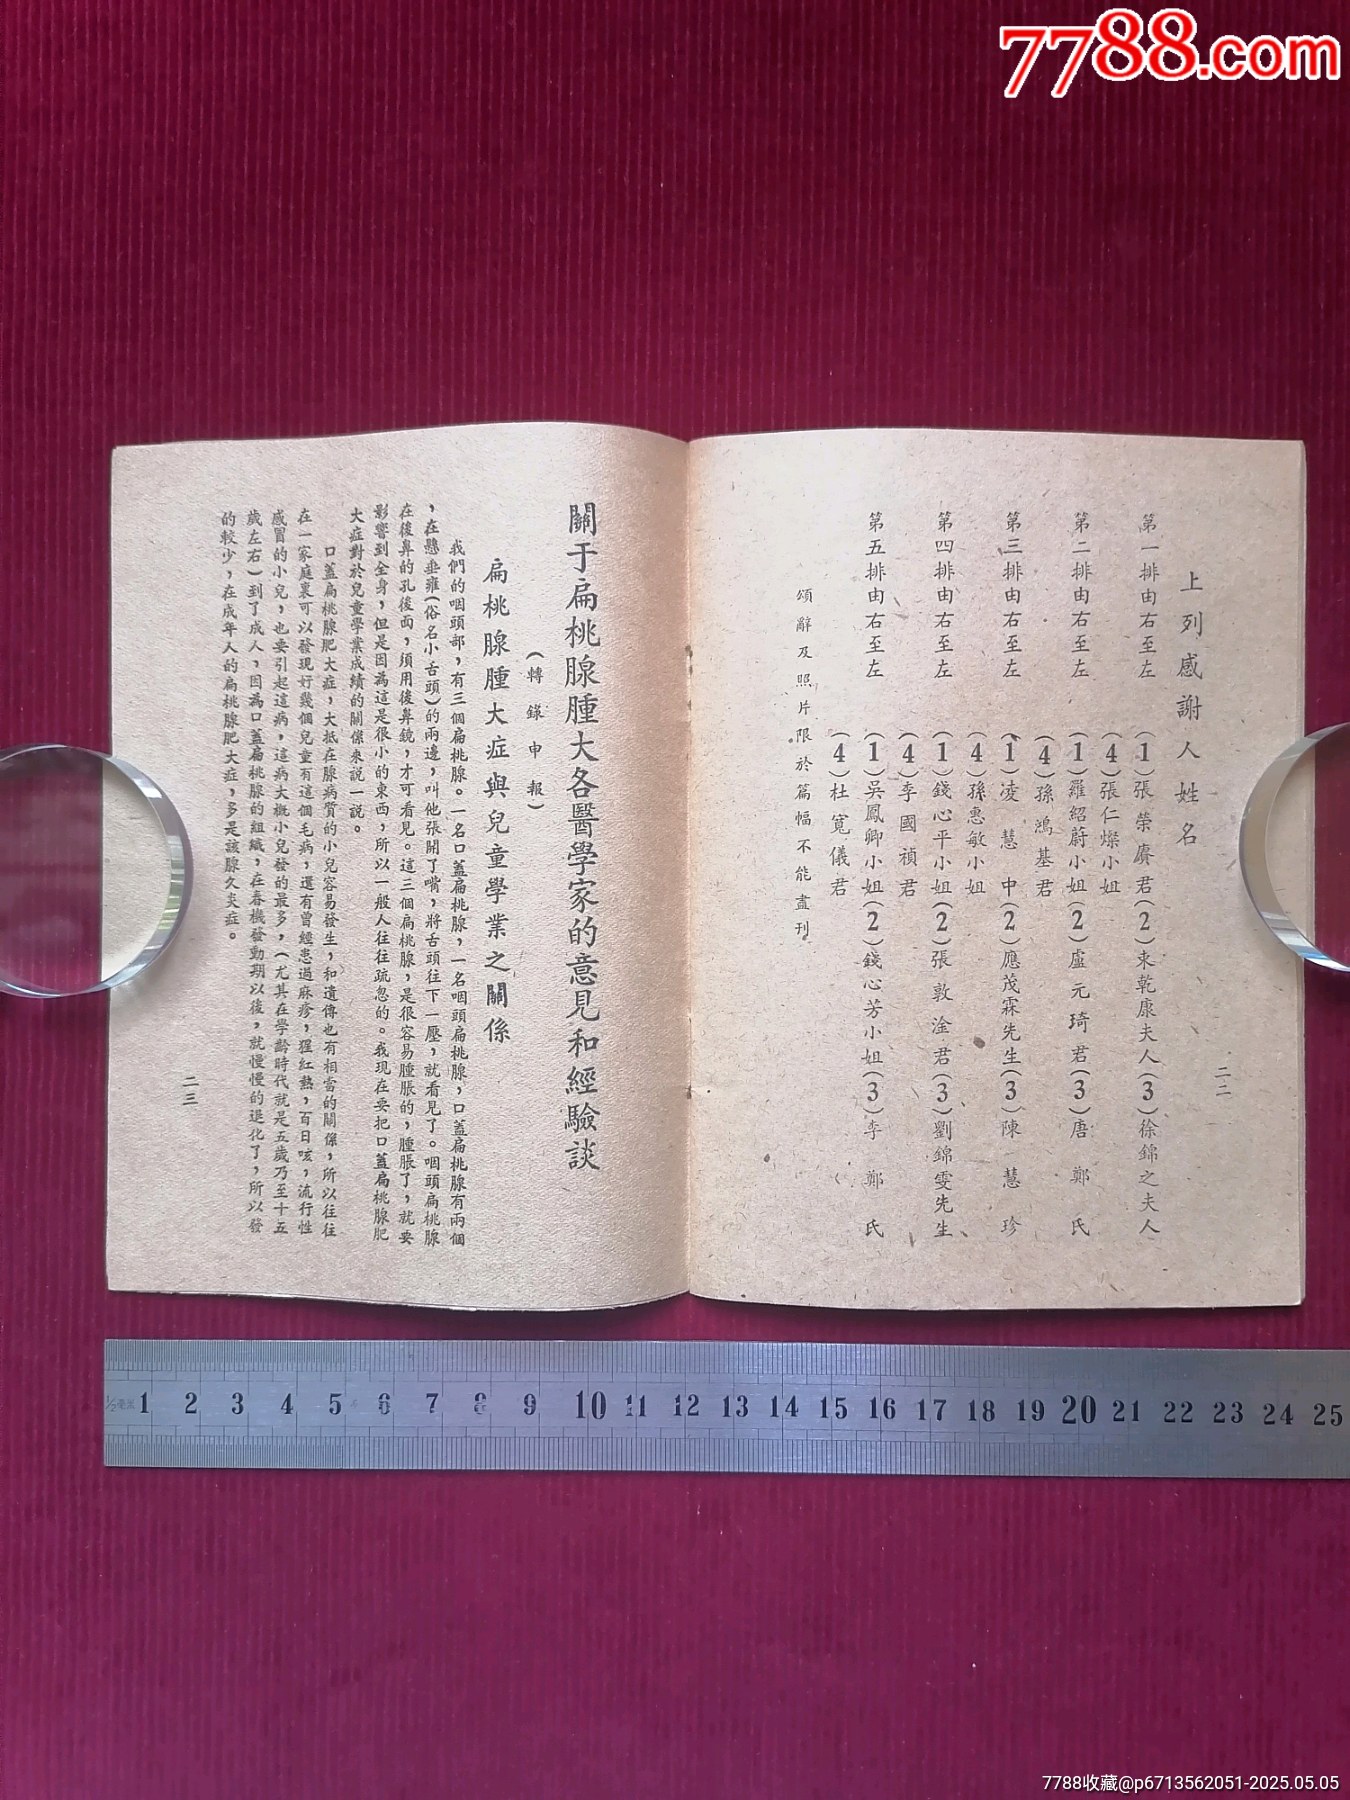 7788.com
二二
上列感謝人姓名
第一排由右至左 (1)張榮賡君(2)束乾康夫人(3)徐錦之夫人
(4)張仁燦小姐
第二排由右至左 (1)羅紹蔚小姐(2)盧元琦君(3)唐鄭氏
(4)孫鴻基君
第三排由右至左 (1)凌慧中(2)應茂霖先生(3)陳慧珍
(4)孫惠敏小姐
第四排由右至左 (1)錢心平小姐(2)張敦淦君(3)劉錦雯先生
(4)李國禎君
第五排由右至左 (1)吳鳳卿小姐(2)錢心芳小姐(3)李鄭氏
(4)杜寬儀君
頌辭及照片限於篇幅不能盡刊
關于扁桃腺腫大各醫學家的意見和經驗談
(轉錄申報)
扁桃腺腫大症與兒童學業之關係
我們的咽頭部,有三個扁桃腺。一名口蓋扁桃腺,一名咽頭扁桃腺,口蓋扁桃腺有兩個
,在懸壅雍(俗名小舌頭)的兩邊,叫他張開了嘴,將舌頭往下一壓,就看見了。咽頭扁桃腺
在後鼻的孔後面,須用後鼻鏡,才可看見。這三個扁桃腺,是很容易腫脹的,腫脹了,就要
影響到全身,但是因為這是很小的東西,所以一般人往往疏忽的。我現在要把口蓋扁桃腺肥
大症對於兒童學業成績的關係來說一說。
口蓋扁桃腺肥大症,大抵在腺病質的小兒容易發生,和遺傳也有相當的關係,所以往往
在一家庭裏可以發現好幾個兒童有這個毛病,還有曾經患過麻疹,猩紅熱,百日咳,流行性
感冒的小兒,也要引起這病,這病大概小兒發的最多,(尤其在學齡時代就是五歲乃至十五
歲左右)到了成人,因為口蓋扁桃腺的組織,在春機發動期以後,就慢慢的退化了,所以發
的較少,在成年人的扁桃腺肥大症,多是該腺久炎症。
二三
½毫米 1 2 3 4 5 6 7 8 9 10 11 12 13 14 15 16 17 18 19 20 21 22 23 24 25
7788收藏@p6713562051-2025.05.05